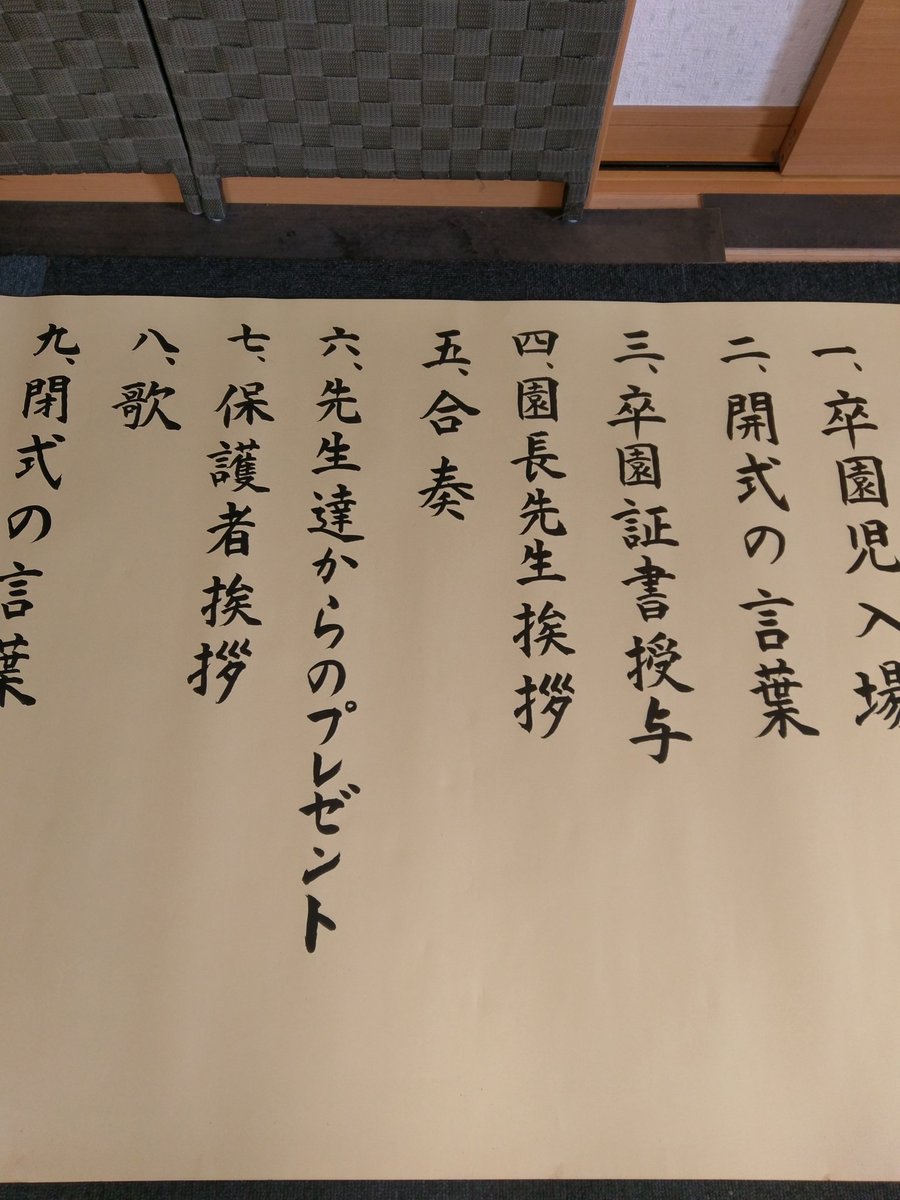 一、卒園児入場
二、開式の言葉
三、卒園証書授与
四、園長先生挨拶
五、合奏
六、先生達からのプレゼント
七、保護者挨拶
八、歌
九、閉式の言葉